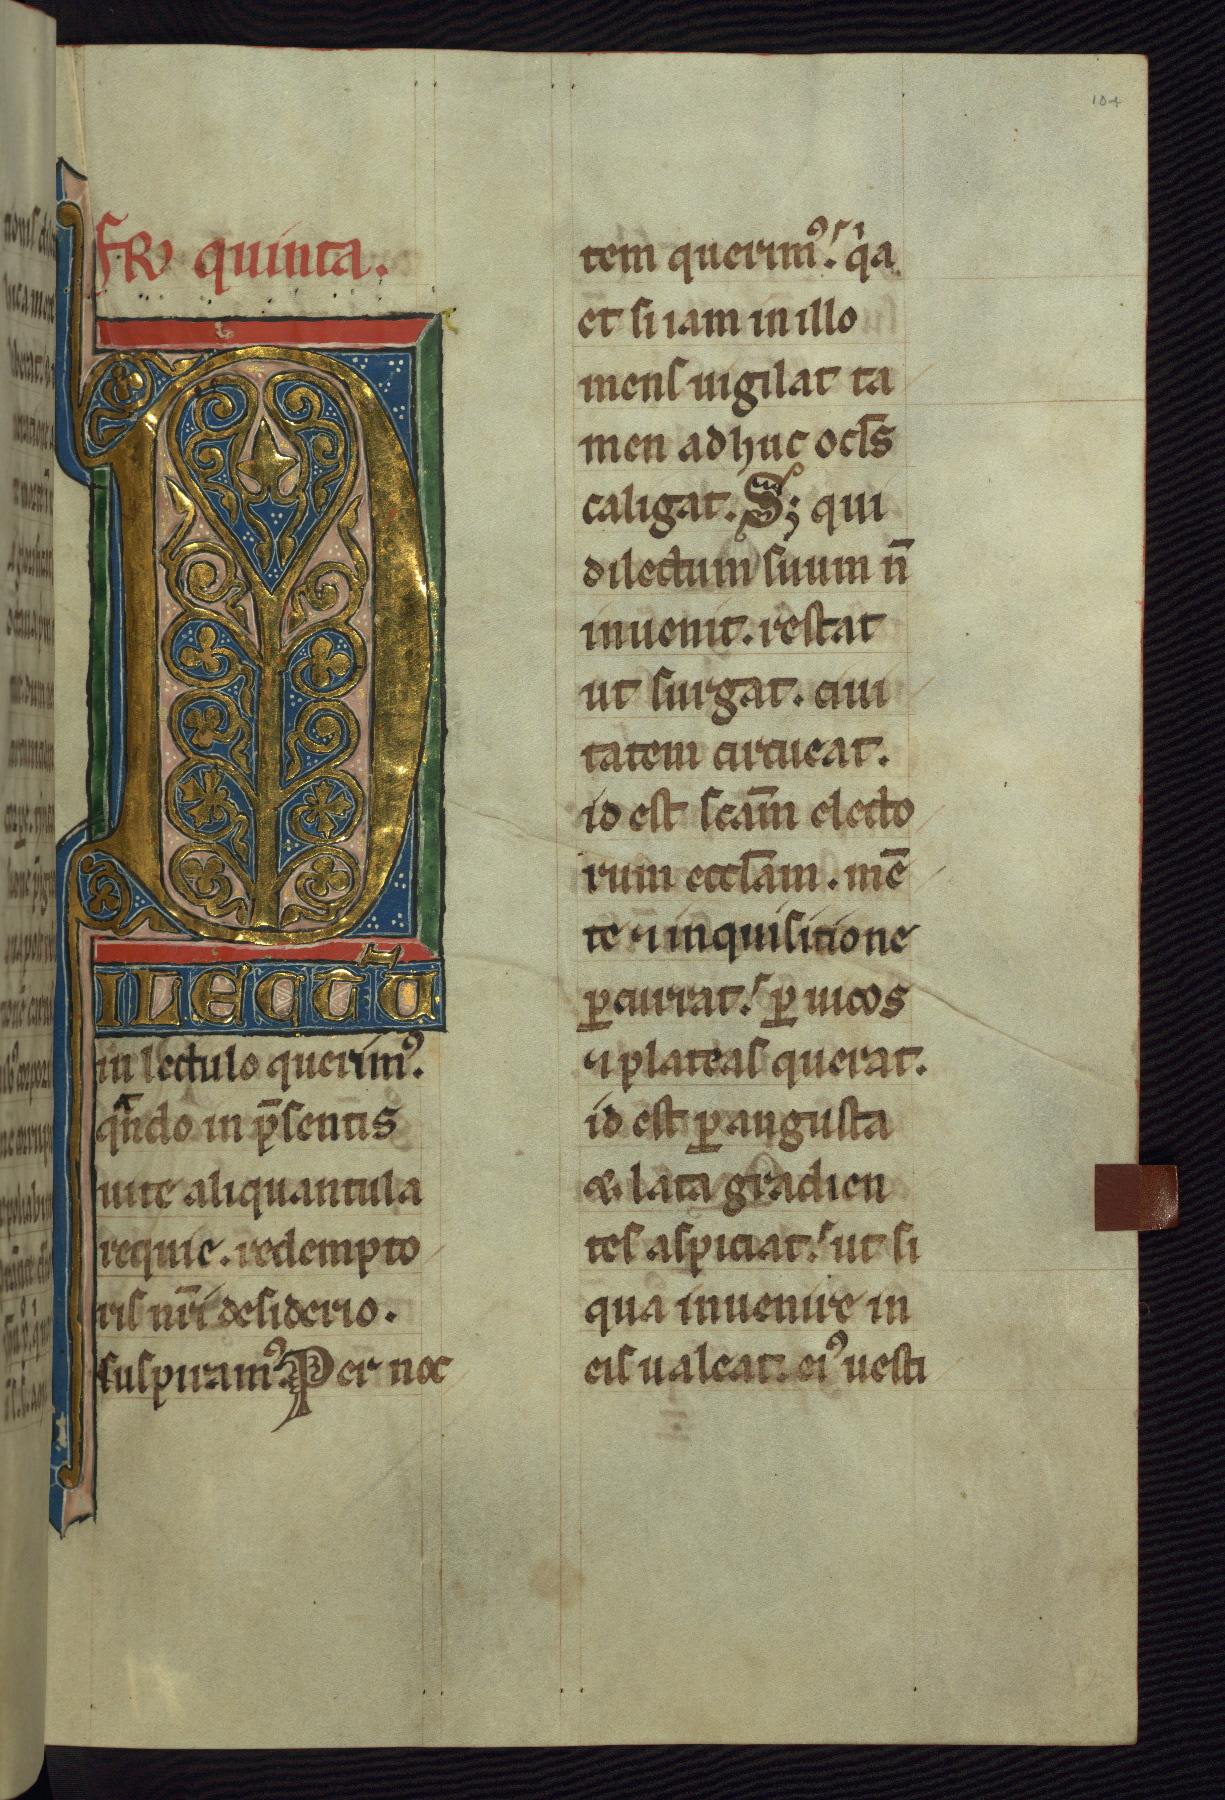 104
FR̃ quinta.
DILECTŪ
in lectulo querimꝰ.
qͣndo in p̄sentis
uite aliquantula
requie. redempto
ris nr̄i desiderio.
suspiramꝰ. Per noc
tem querimꝰ. qͥa
et si iam in illo
mens uigilat ta
men adhuc ocl̄s
caligat. S; qui
dilectum suum n̄
inuenit. restat
ut surgat. ciui
tatem circueat.
id est scām electo
rum eccl̄am. mē
te ⁊ inquisitione
ꝑcurrat. ꝑ uicos
⁊ plateas querat.
id est ꝑ angusta
& lata gradien
tes aspiciat. ut si
qua inuenire in
eis ualeat. eiꝰ uesti